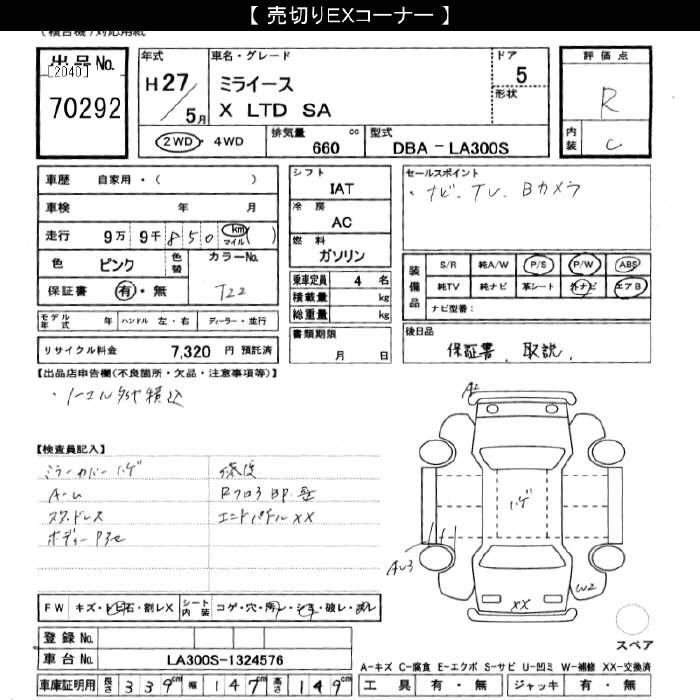 【 売切りEXコーナー 】
出品No.
[2040]
70292
年式
H27/5月
車名・グレード
ミライース
X LTD SA
ドア
5
形状
評価点
R
内装
C
2WD・4WD
排気量
660 cc
型式
DBA - LA300S
車歴 自家用・( )
車検 年 月
走行 9万 9千 850 km マイル ( )
色 ピンク 色替
カラーNo.
T22
保証書 有・無
モデル年式 年 ハンドル 左・右 ディーラー・並行
リサイクル料金 7,320 円 預託済
シフト
IAT
冷房
AC
燃料
ガソリン
乗車定員 4 名
積載量 kg
総重量 kg
書類期限
月 日
セールスポイント
・ナビ、TV、Bカメラ
装備品
S/R 純A/W P/S P/W ABS
純TV 純ナビ 革シート 外ナビ エアB
ナビ型番:
後日品
保証書、取説、
【出品店申告欄(不良箇所・欠品・注意事項等)】
【検査員記入】
ミラーカバー ハゲ
エンドパネル XX
A2
ハゲ
AU3
W2
XX
スペア
FW キズ・飛石・割レX
シート内装 コゲ・穴・汚レ・シミ・破レ・スレ
登録No.
車台No. LA300S-1324576
車庫証明用 長さ 339cm 幅 147cm 高さ 149cm
A-キズ C-腐食 E-エクボ S-サビ U-凹ミ W-補修 XX-交換済
工具 有・無 ジャッキ 有・無